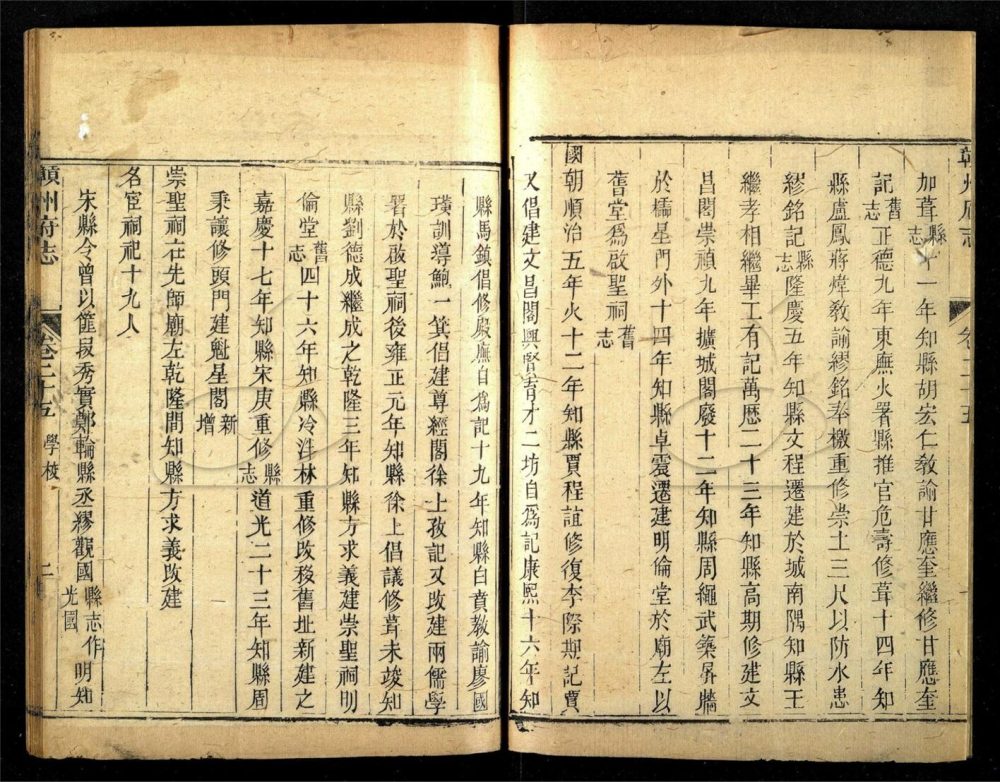 加葺縣志十一年知縣胡宏仁敎諭甘應奎繼修甘應奎
記舊志正德九年東廡火署縣推官危壽修葺十四年知
縣盧鳳蔣煒敎諭繆銘奉檄重修崇土三尺以防水患
繆銘記縣志隆慶五年知縣文程遷建於城南隅知縣王
繼孝相繼畢工有記萬歷二十三年知縣高期修建文
昌閣崇禎九年擴城閣廢十二年知縣周繩武築屏牆
於櫺星門外十四年知縣卓震遷建明倫堂於廟左以
舊堂爲啟聖祠舊志
國朝順治五年火十二年知縣賈程誼修復李際期記賈
又倡建文昌閣興賢育才二坊自爲記康熙十六年知
縣馬鎮倡修殿廡自爲記十九年知縣白賁敎諭廖國
璜訓導鮑一箕倡建尊經閣徐上孜記又改建兩儒學
署於啟聖祠後雍正元年知縣徐上倡議修葺未竣知
縣劉德成繼成之乾隆三年知縣方求義建崇聖祠明
倫堂舊志四十六年知縣冷泮林重修改移舊址新建之
嘉慶十七年知縣宋庚重修縣志道光二十三年知縣周
秉讓修頭門建魁星閣新增
崇聖祠在先師廟左乾隆間知縣方求義改建
名宦祠祀十九人
宋縣令曾以簠段秀實鄭輪縣丞繆觀國縣志作光國明知
贑州府志
卷二十五 學校 二
贑州府志
卷二十五